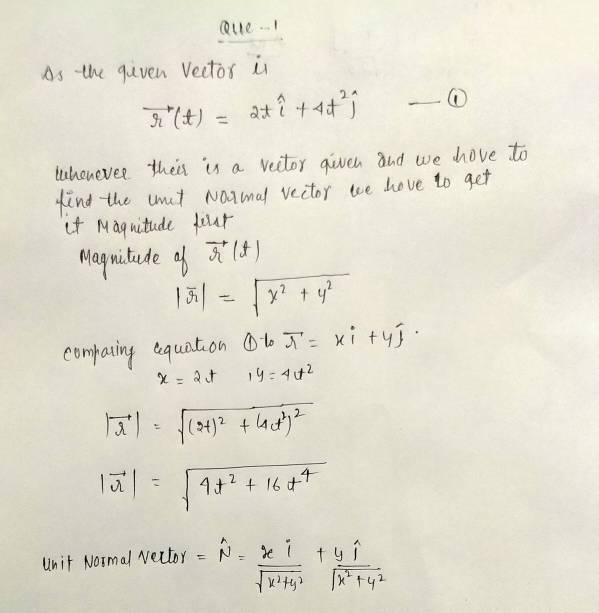 Que -1
As the given Vector is
r⃗(t) = 2t î + 4t² ĵ — ①
Whenever their is a vector given and we have to
find the unit Normal Vector we have to get
it Magnitude first
Magnitude of r⃗(t)
|r⃗| = √(x² + y²)
comparing equation ① to r⃗ = x î + y ĵ .
x = 2t , y = 4t²
|r⃗| = √((2t)² + (4t²)²)
|r⃗| = √(4t² + 16t⁴)
Unit Normal Vector = N̂ = x î / √(x²+y²) + y ĵ / √(x²+y²)